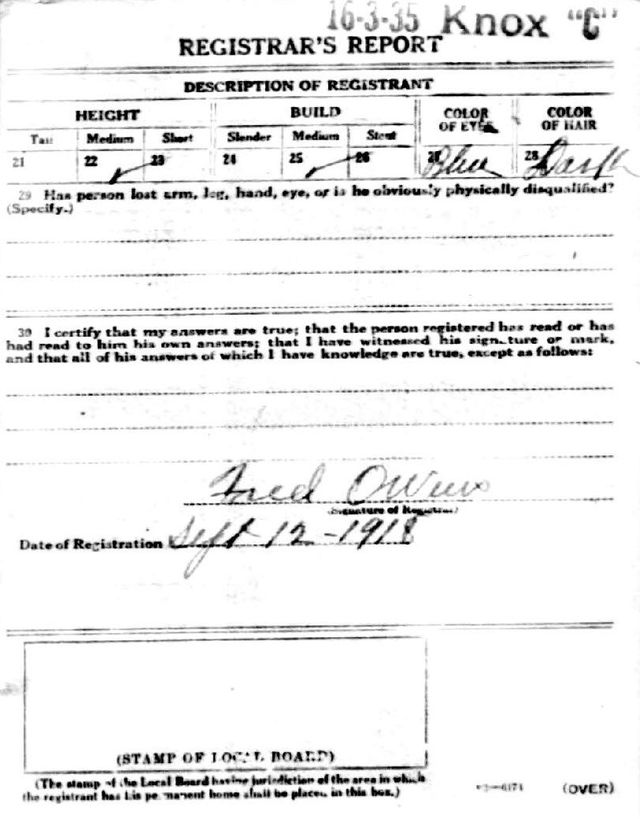 16-3-35 Knox "C"
REGISTRAR'S REPORT
DESCRIPTION OF REGISTRANT
HEIGHT BUILD COLOR OF EYES COLOR OF HAIR
Tall Medium Short Slender Medium Stout
21 22 ✓ 23 24 25 ✓ 26 27 Blue 28 Dark
29 Has person lost arm, leg, hand, eye, or is he obviously physically disqualified?
(Specify.)
30 I certify that my answers are true; that the person registered has read or has
had read to him his own answers; that I have witnessed his signature or mark,
and that all of his answers of which I have knowledge are true, except as follows:
Fred Owens
(Signature of Registrar)
Date of Registration Sept 12-1918
(STAMP OF LOCAL BOARD)
(The stamp of the Local Board having jurisdiction of the area in which
the registrant has his permanent home shall be placed in this box.)
(OVER)